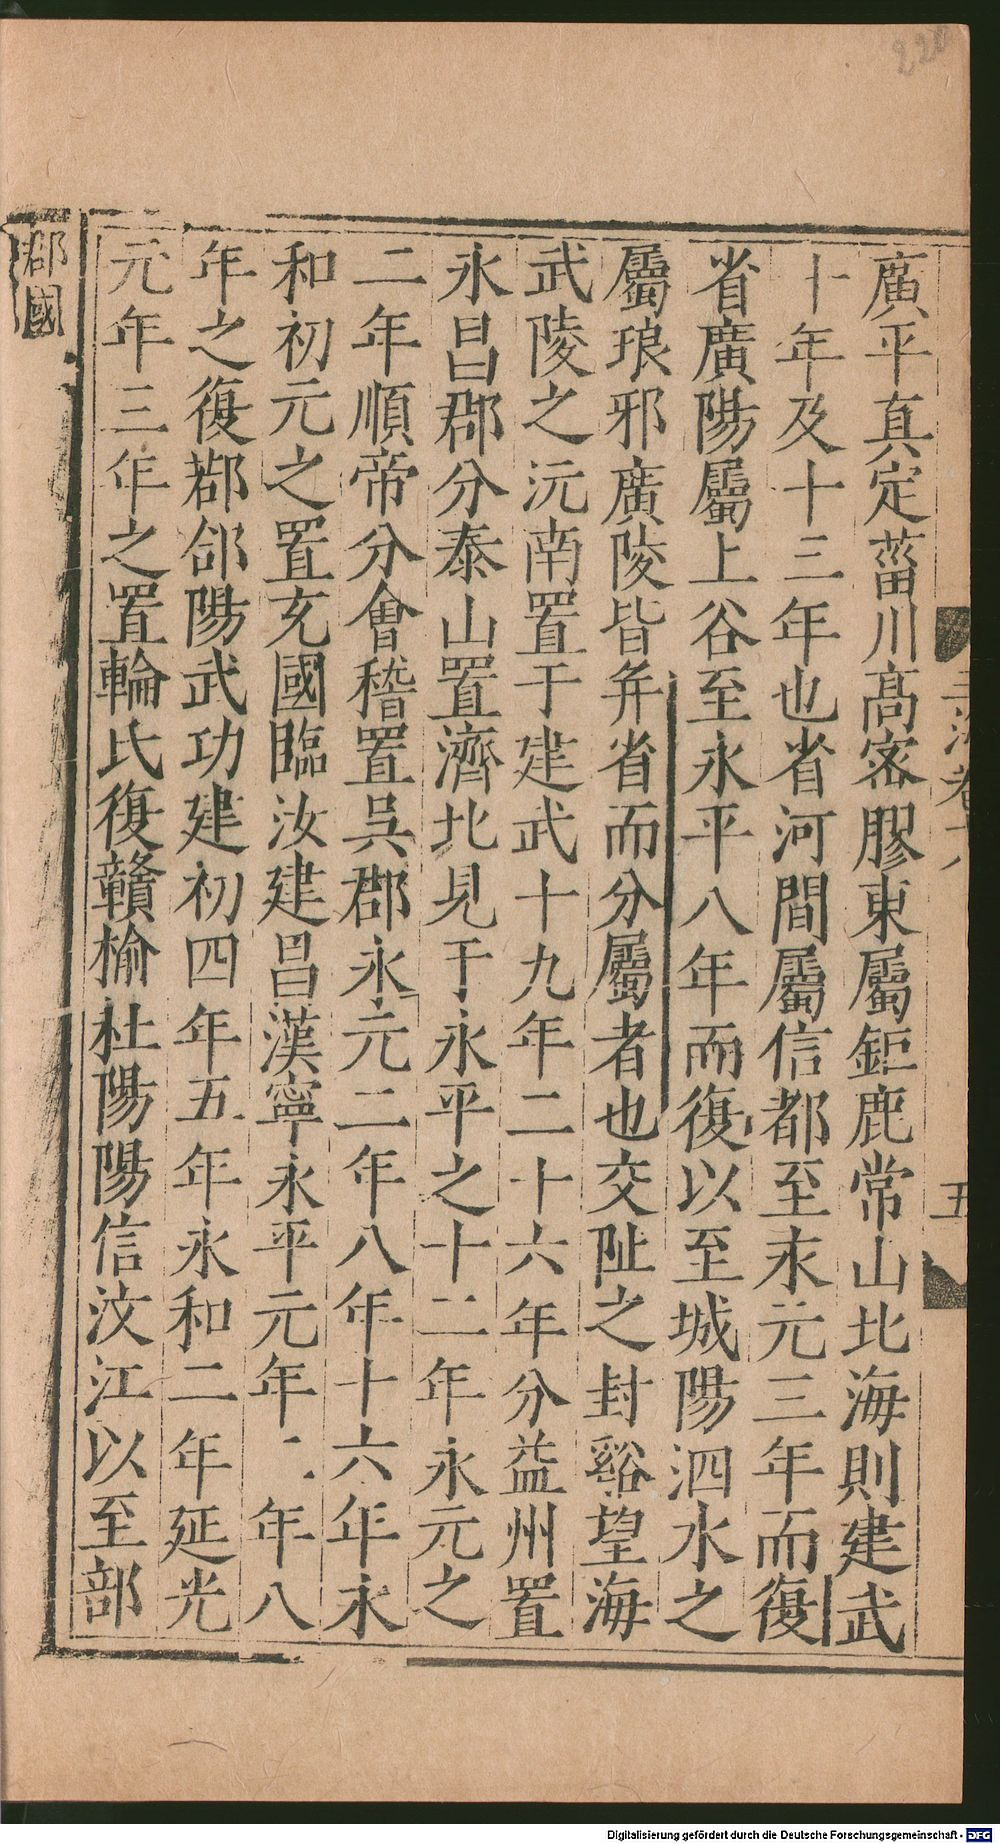 220
廣平真定菑川髙密膠東屬鉅鹿常山北海則建武
十年及十三年也省河間屬信都至永元三年而復
省廣陽屬上谷至永平八年而復以至城陽泗水之
屬琅邪廣陵皆并省而分屬者也交阯之封谿望海
武陵之沅南置于建武十九年二十六年分益州置
永昌郡分泰山置濟北見于永平之十二年永元之
二年順帝分會稽置吳郡永元二年八年十六年永
和初元之置充國臨汝建昌漢寧永平元年二年八
年之復鄀郃陽武功建初四年五年永和二年延光
元年三年之置輪氏復贛榆杜陽陽信汶江以至部
郡國
玉海卷十八
五
Digitalisierung gefördert durch die Deutsche Forschungsgemeinschaft - DFG